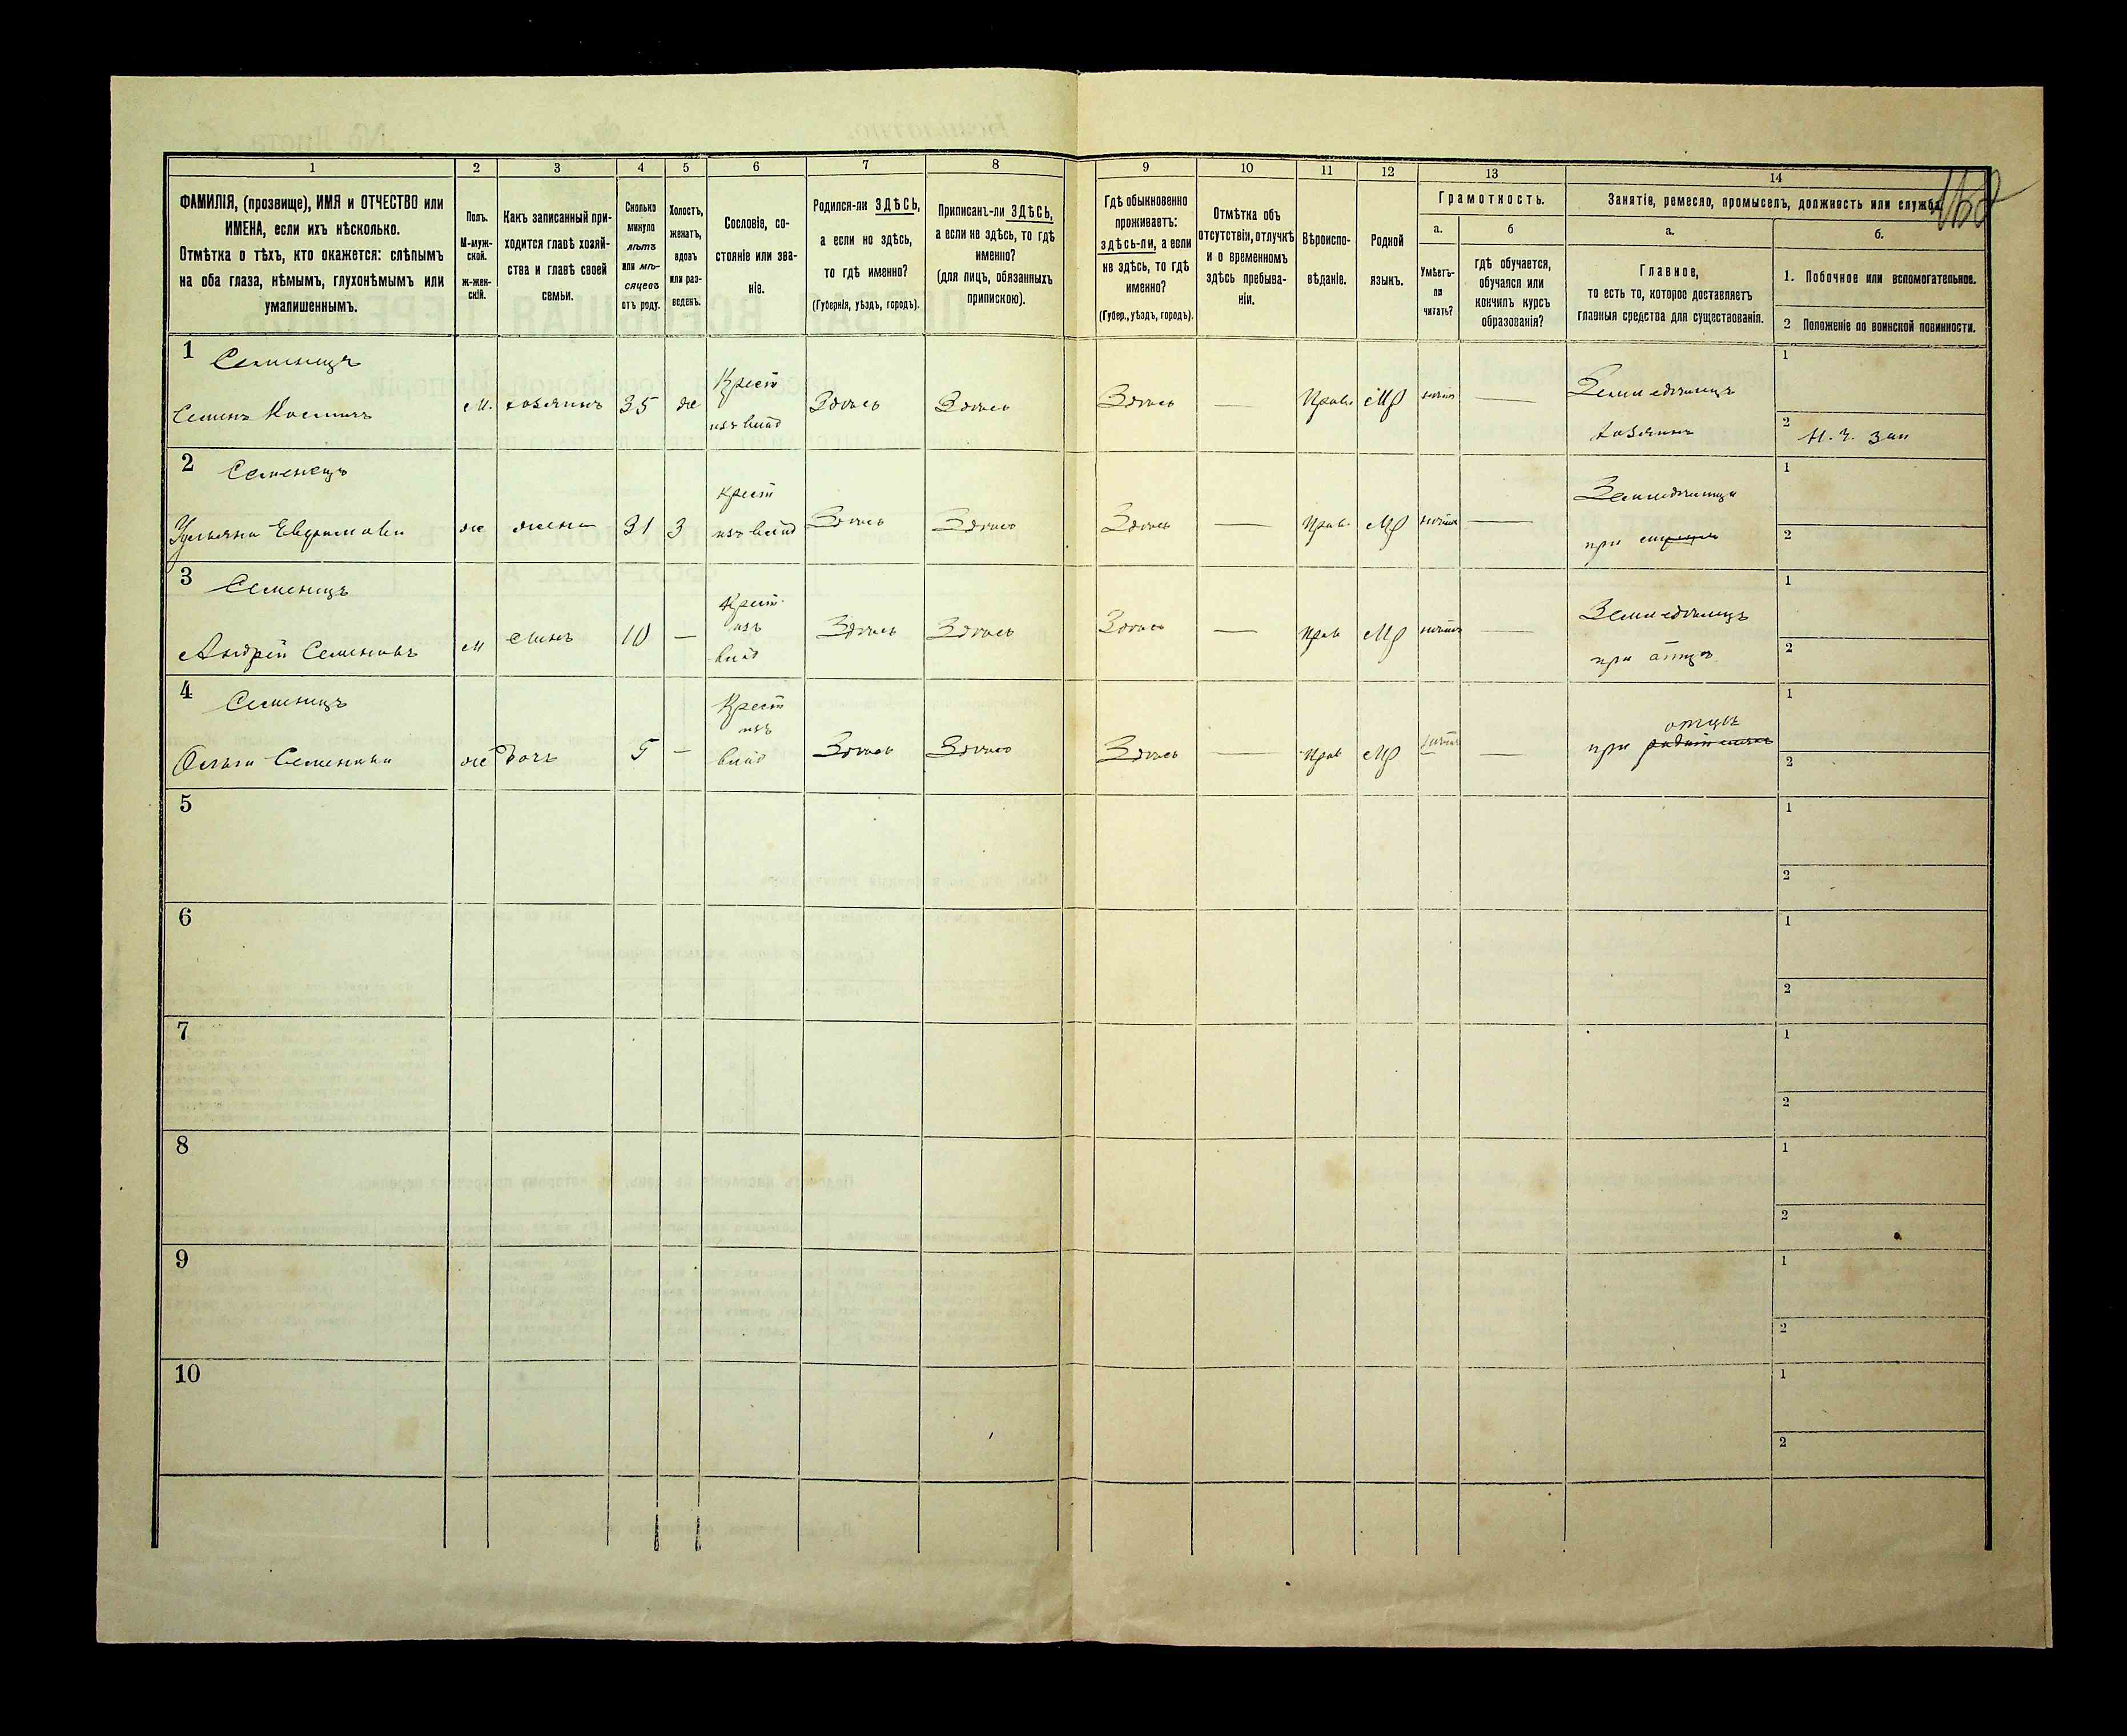 1 2 3 4 5 6 7 8 9 10 11 12 13 14
ФАМИЛІЯ, (прозвище), ИМЯ и ОТЧЕСТВО или
ИМЕНА, если ихъ нѣсколько.
Отмѣтка о тѣхъ, кто окажется: слѣпымъ
на оба глаза, нѣмымъ, глухонѣмымъ или
умалишеннымъ.
Полъ.
М-муж-
ской.
ж-жен-
скій.
Какъ записанный при-
ходится главѣ хозяй-
ства и главѣ своей
семьи.
Сколько
минуло
лѣтъ
или мѣ-
сяцевъ
отъ роду.
Холостъ,
женатъ,
вдовъ
или раз-
веденъ.
Сословіе, со-
стояніе или зва-
ніе.
Родился-ли ЗДѢСЬ,
а если не здѣсь,
то гдѣ именно?
(Губернія, уѣздъ, городъ).
Приписанъ-ли ЗДѢСЬ,
а если не здѣсь, то гдѣ
именно?
(для лицъ, обязанныхъ
припискою).
Гдѣ обыкновенно
проживаетъ:
здѣсь-ли, а если
не здѣсь, то гдѣ
именно?
(Губер., уѣздъ, городъ).
Отмѣтка объ
отсутствіи, отлучкѣ
и о временномъ
здѣсь пребыва-
ніи.
Вѣроиспо-
вѣданіе.
Родной
языкъ.
Грамотность.
а.
Умѣетъ-
ли
читать?
б
гдѣ обучается,
обучался или
кончилъ курсъ
образованія?
Занятіе, ремесло, промыселъ, должность или служба.
а.
Главное,
то есть то, которое доставляетъ
главныя средства для существованія.
б.
1. Побочное или вспомогательное.
2 Положеніе по воинской повинности.
1 Семенецъ
Семенъ М. хозяинъ 35 же Крест изъ Здѣсь Здѣсь Здѣсь — Прав. Мр — Земледѣлецъ хозяинъ
1
2
2 Семенецъ
Ульяна же жена 31 З Крест изъ Здѣсь Здѣсь Здѣсь — Прав. Мр — при
1
2
3 Семенецъ
Андрей Семеновъ М сынъ 10 — Крест изъ Здѣсь Здѣсь Здѣсь — Прав Мр — Земледѣлецъ при отцѣ
1
2
4 Семенецъ
Семенова же дочь 5 — Крест изъ Здѣсь Здѣсь Здѣсь — Прав Мр — при отцѣ
1
2
5
1
2
6
1
2
7
1
2
8
1
2
9
1
2
10
1
2